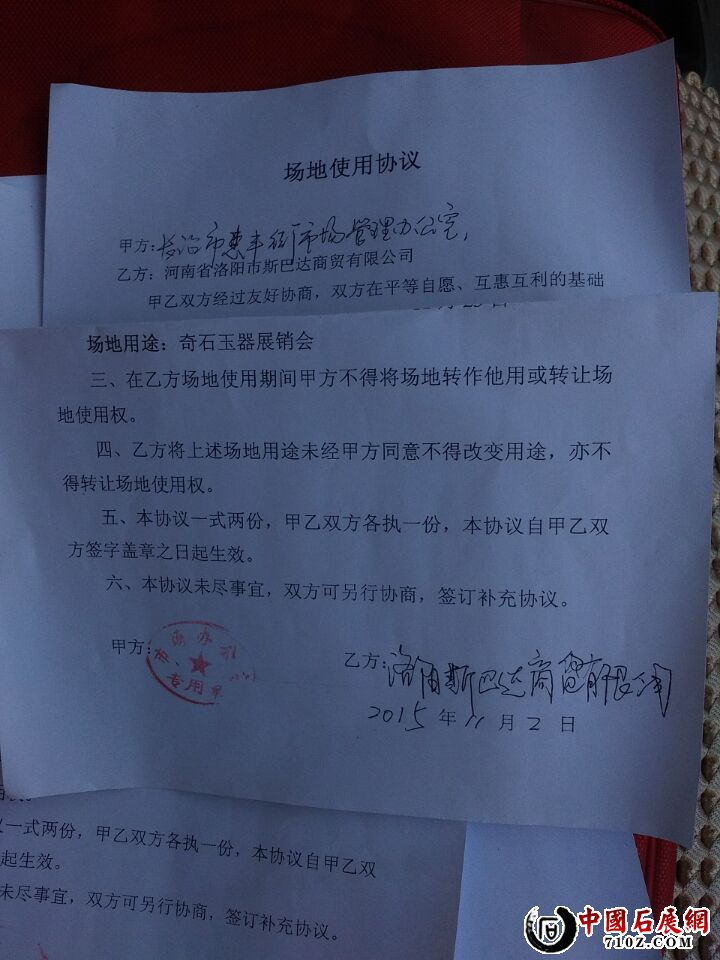 场地使用协议
甲方:长治市惠丰街市场管理办公室,
乙方:河南省洛阳市斯巴达商贸有限公司
甲乙双方经过友好协商,双方在平等自愿、互惠互利的基础
场地用途:奇石玉器展销会
三、在乙方场地使用期间甲方不得将场地转作他用或转让场
地使用权。
四、乙方将上述场地用途未经甲方同意不得改变用途,亦不
得转让场地使用权。
五、本协议一式两份,甲乙双方各执一份,本协议自甲乙双
方签字盖章之日起生效。
六、本协议未尽事宜,双方可另行协商,签订补充协议。
甲方:
专用章
乙方:洛阳斯巴达商贸有限公司
2015年11月2日
一式两份,甲乙双方各执一份,本协议自甲乙双
起生效。
未尽事宜,双方可另行协商,签订补充协议。
中國石展網
710Z.COM